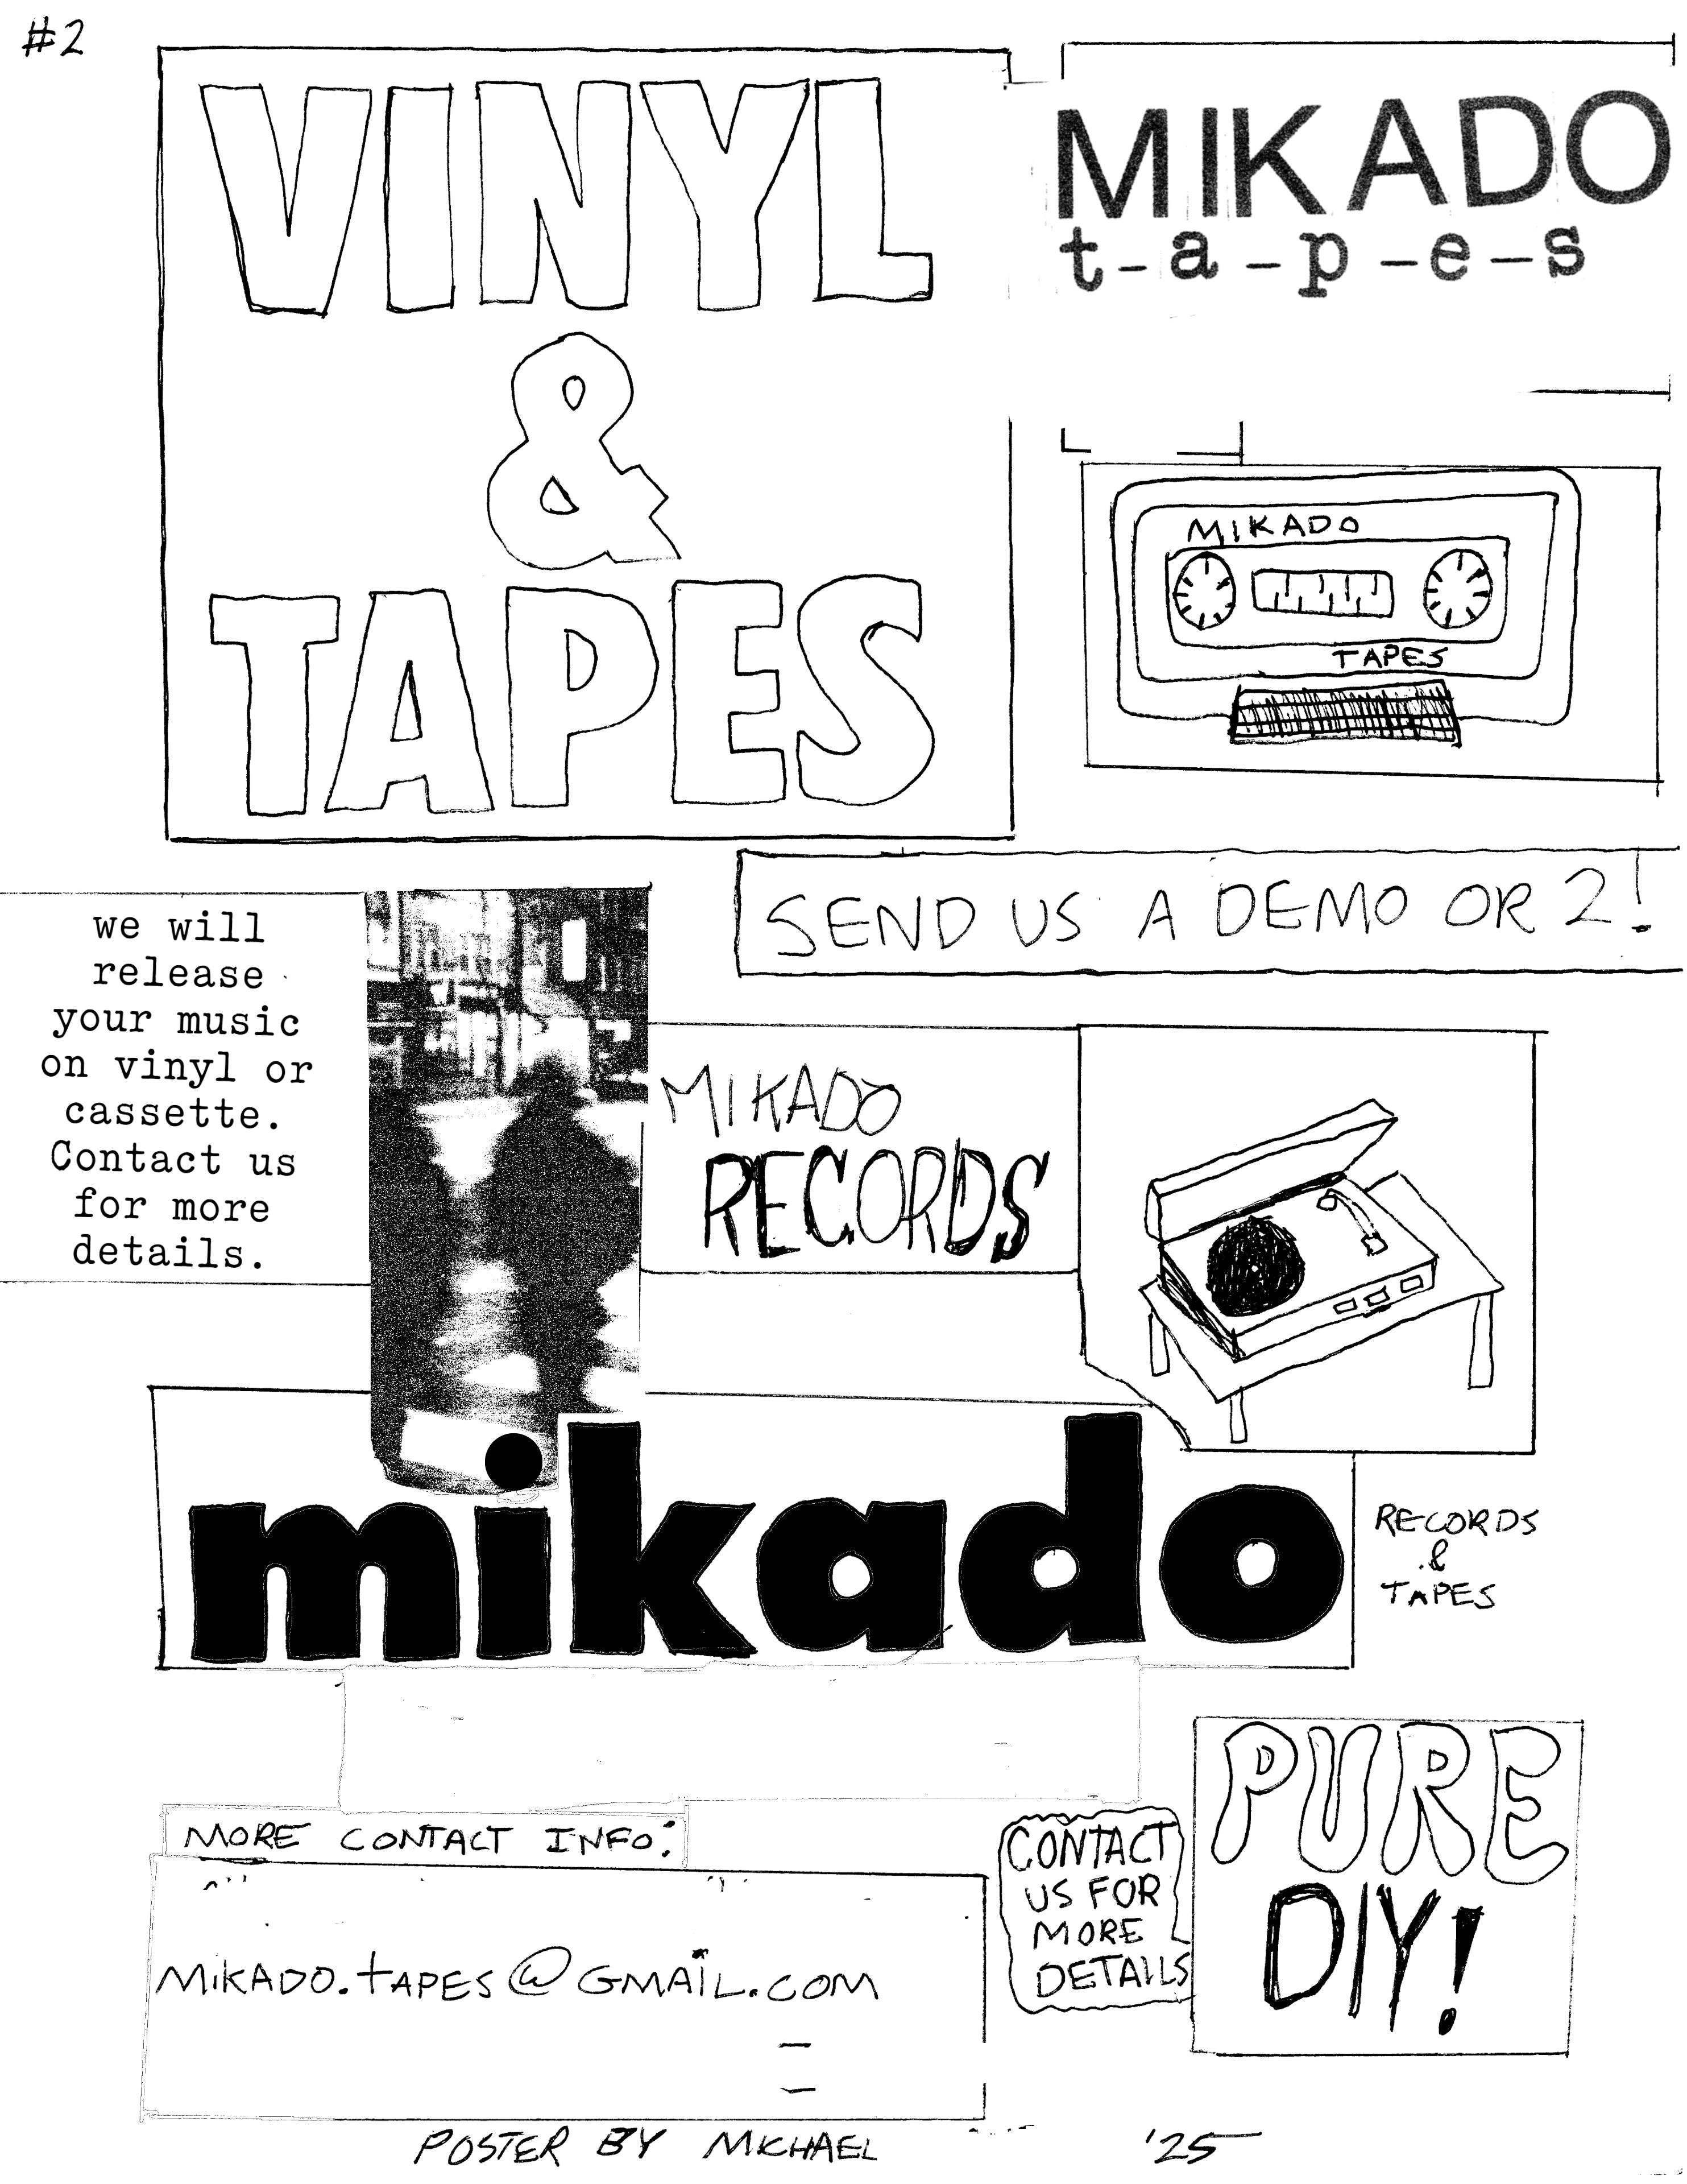 #2
VINYL
&
TAPES
MIKADO
t-a-p-e-s
MIKADO
TAPES
SEND US A DEMO OR 2!
we will
release
your music
on vinyl or
cassette.
Contact us
for more
details.
MIKADO
RECORDS
mikado
RECORDS
&
TAPES
PURE
DIY!
MORE CONTACT INFO:
MiKADO.tAPES@GMAiL.COM
CONTACT
US FOR
MORE
DETAILS
POSTER BY MICHAEL '25